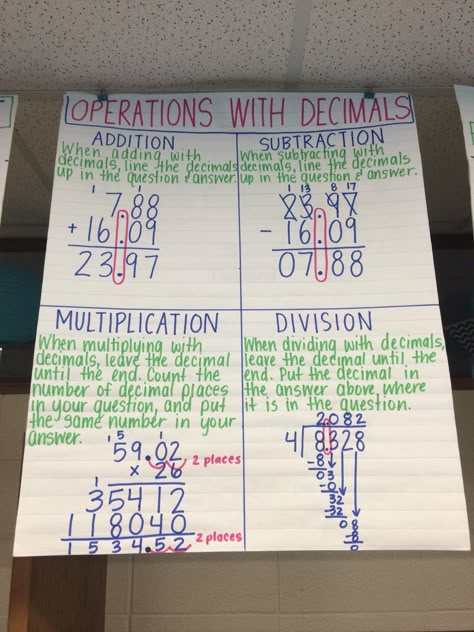 OPERATIONS WITH DECIMALS
ADDITION
When adding with
decimals, line the decimals
up in the question & answer.
1
7.88
+ 16.09
23.97
SUBTRACTION
When subtracting with
decimals, line the decimals
up in the question & answer.
1 13 8 17
23.97
- 16.09
07.88
MULTIPLICATION
When multiplying with
decimals, leave the decimal
until the end. Count the
number of decimal places
in your question, and put
the same number in your
answer.
1 5 1
59.02 2 places
x 26
1
35412
118040
1534.52 2 places
DIVISION
When dividing with decimals,
leave the decimal until the
end. Put the decimal in
the answer above where
it is in the question.
2.082
4 8.328
-8
03
-0
32
-32
08
-8
0